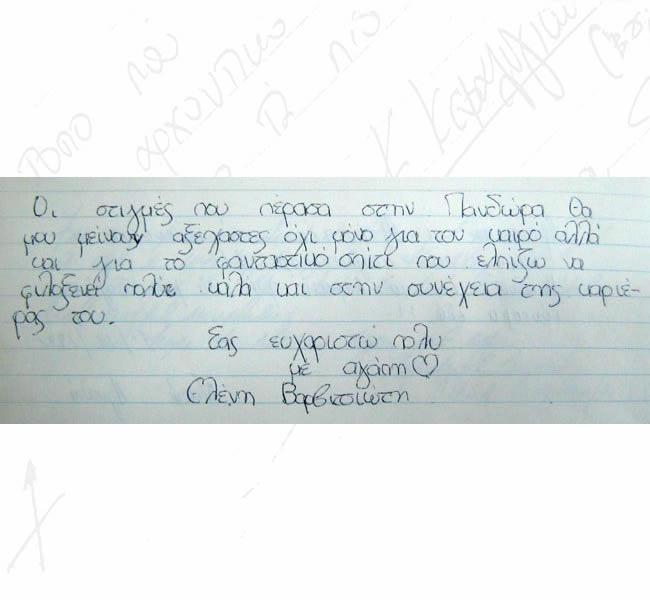 Τόσο πολ
αρχοντικό
Οι στιγμές που πέρασα στην Πανδώρα θα
μου μείνουν αξέχαστες όχι μόνο για τον καιρό αλλά
και για το φανταστικό σπίτι που ελπίζω να
φιλοξενεί πολύ καλά και στην συνέχεια της καριέ-
ρας του.
Σας ευχαριστώ πολυ
με αγάπη ♡
Ελένη Βαρβιτσιώτη